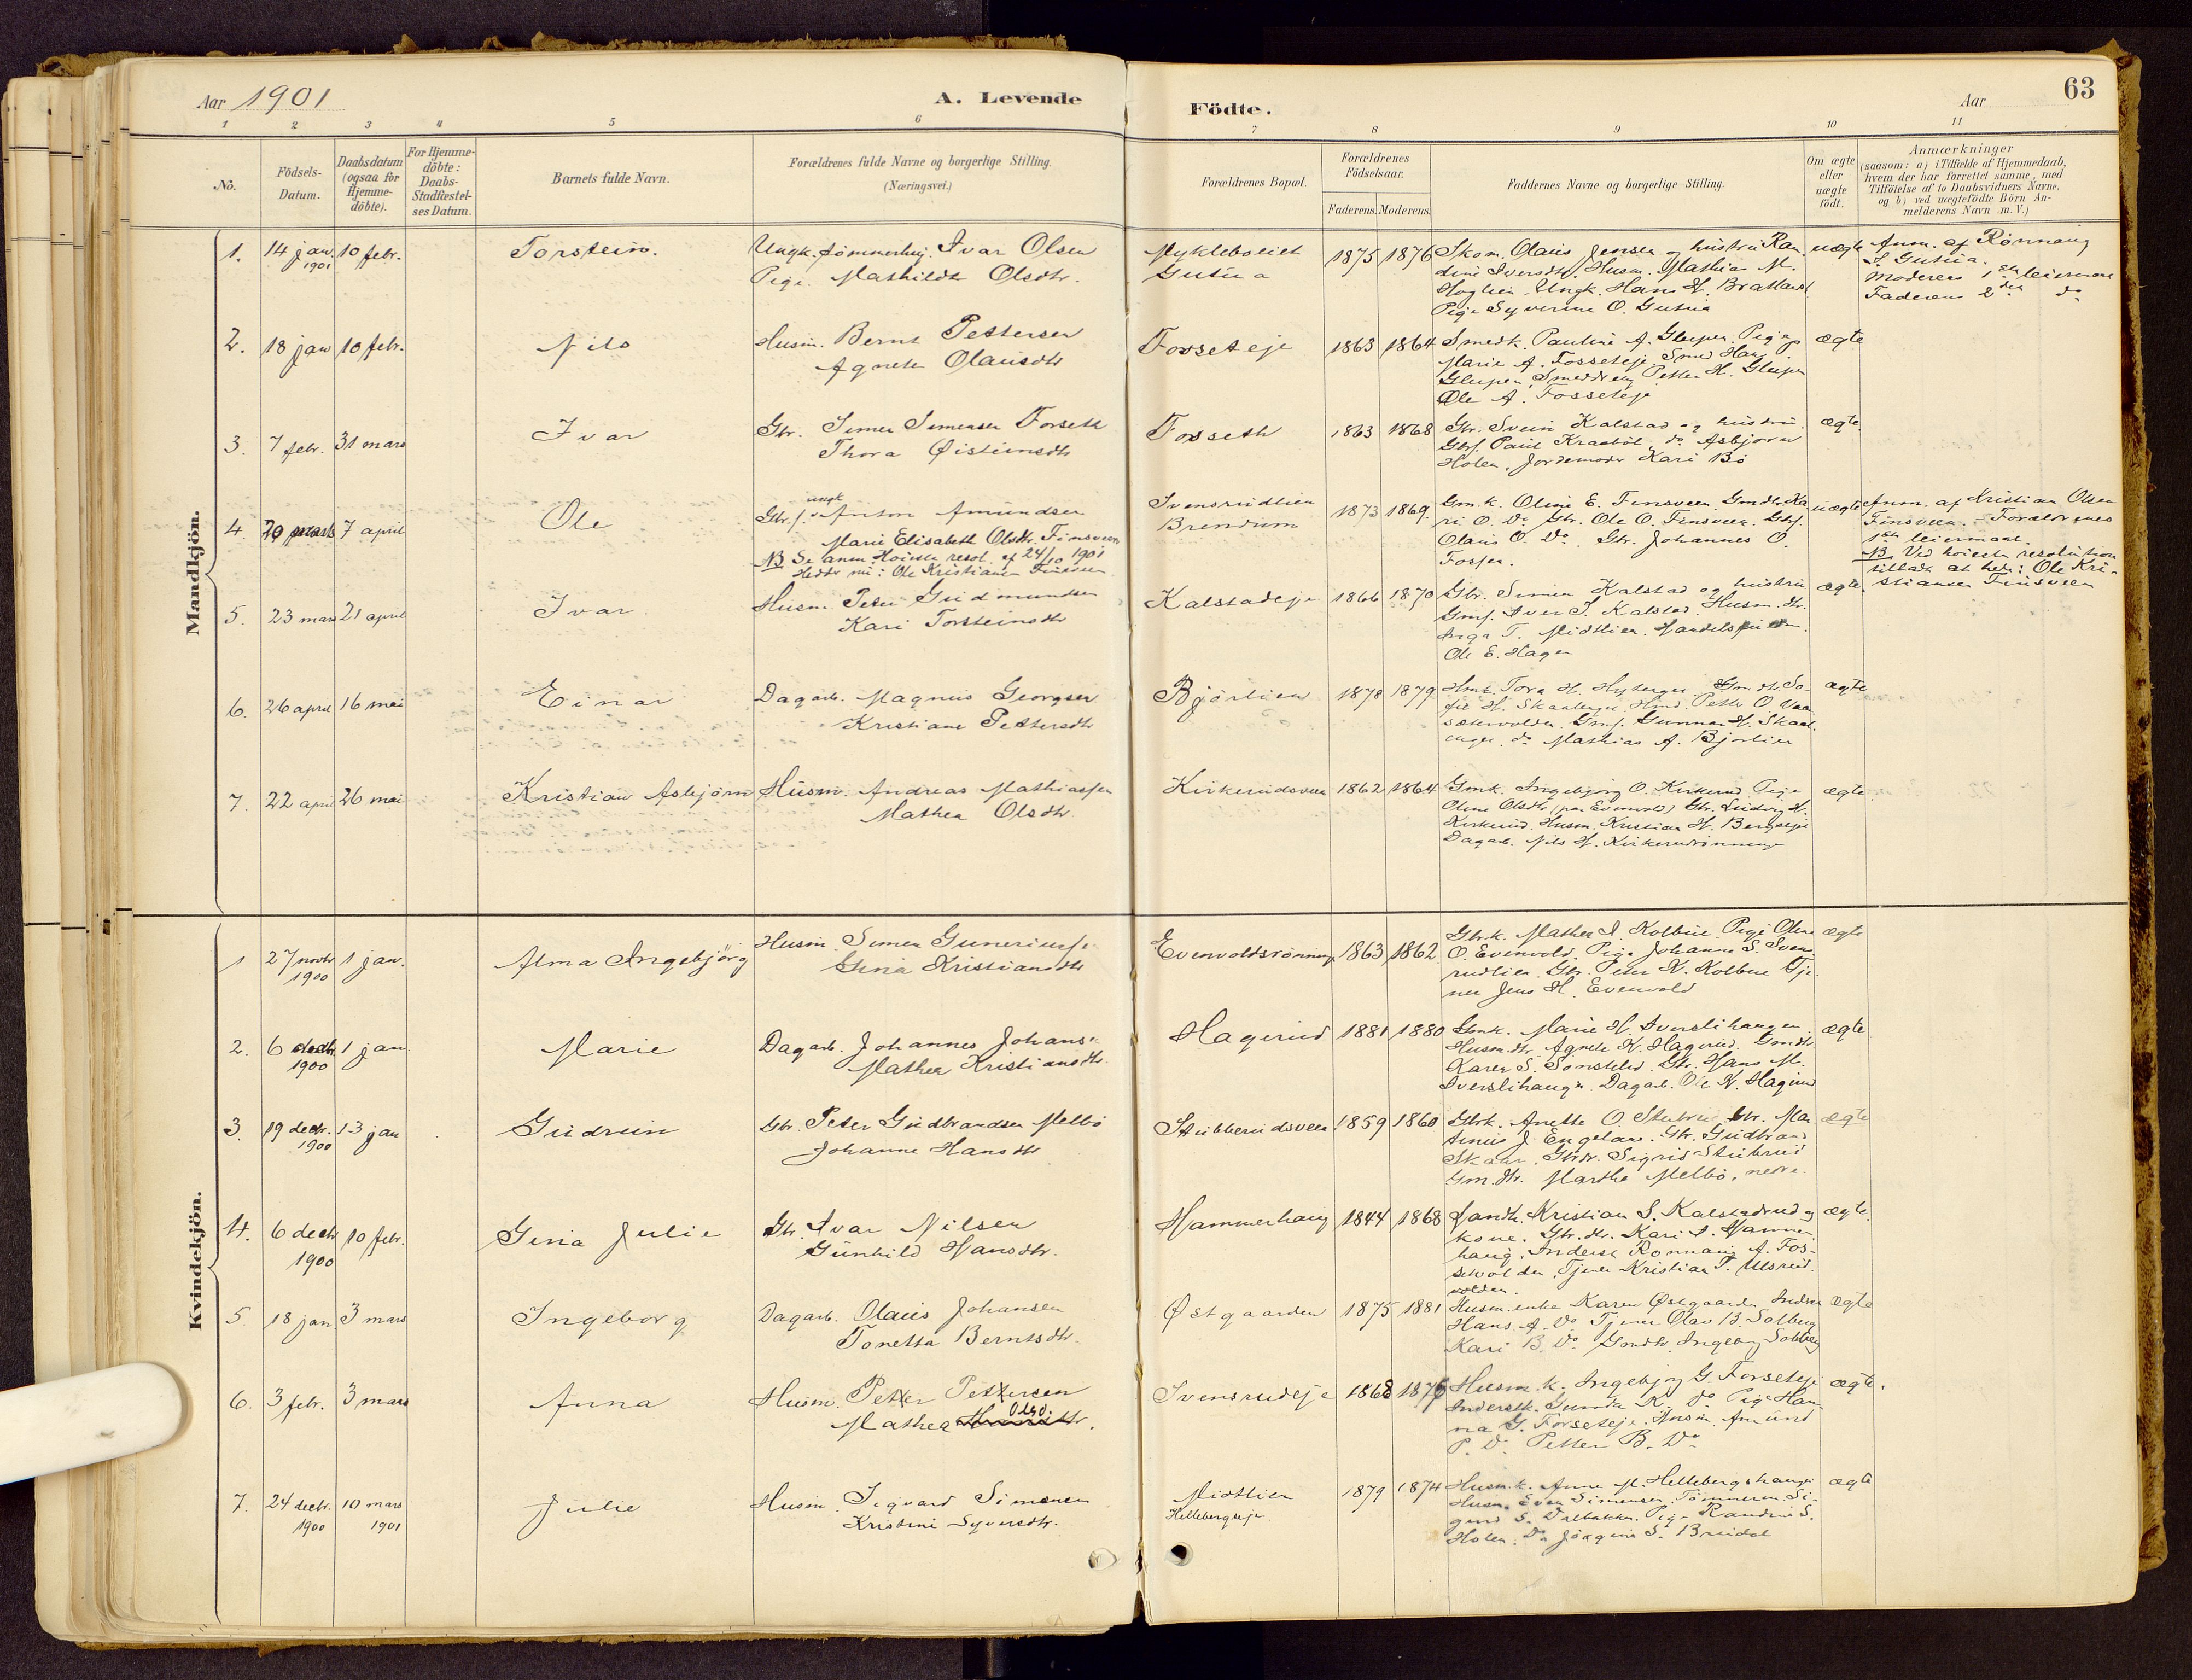 Aar 1901
A. Levende
Födte.
Aar
63
1 2 3 4 5 6 7 8 9 10 11
No.
Födsels-
Datum.
Daabsdatum
(ogsaa for
Hjemme-
döbte).
For Hjemme-
döbte:
Daabs-
Stadfæstel-
ses Datum.
Barnets fulde Navn.
Forældrenes fulde Navne og borgerlige Stilling.
(Næringsvei.)
Forældrenes Bopæl.
Forældrenes
Födselsaar.
Faderens. Moderens.
Faddernes Navne og borgerlige Stilling.
Om ægte
eller
uægte
født.
Anmærkninger
(saasom: a) i Tilfælde af Hjemmedaab,
hvem der har forrettet samme, med
Tilföielse af to Daabsvidners Navne,
og b) ved uægtefödte Börn An-
melderens Navn m. V.)
Mandkjön.
1. 14 jan. 1901 10 febr. Torstein.
Ungk. tömmerhug. Ivar Olsen
Pige. Mathilde Olsdtr.
Mykleboliet
Gutua
1875 1876
Skom. Olaus Jensen og hustru Ran
dine Iversdtr. Husm. Mathias M.
Ungk. Hans H.
Pige Syverine O. Gutua
uægte
Anm. af Rönnaug
S. Gutua.
Moderens 1ste leiermaal
Faderens 2det do
2. 18 jan 10 febr. Nils
Husm. Bernt Pettersen
Agnete Olausdtr
Fosseteje
1863 1864
Smedk. Pauline A. Pige
Marie A. Fosseteje Smed Hans
Petter H.
Ole A. Fosseteje
ægte
3. 7 febr. 31 mars Ivar
Gbr. Simen Simensen Forseth
Thora Øisteinsdtr
Fosseth
1863 1868
Gbr. Svein Kalstad og hustru
Gbrs. Paul Kraaböl, do Asbjörn
Holen, Jordemoder Kari Bö
ægte.
4. 20 mars 7 april Ole
ungk
Gbr.s. Anton Amundsen
Marie Elisabeth Olsdtr. Finsveen
NB Se anm. Höieste resol. af 24/10 1901
Hedder nu: Ole Kristiansen Finsveen
Svensrudlien
Brendum
1873 1869.
Gmk. Oline E. Finsveen Gmdtr. Ka
ri O. do Gbr. Ole O. Finsveen. Gbrs.
Olaus O. do. Gbr. Johannes O.
Fossen.
uægte
Anm. af Kristian Olsen
Finsveen. - Forældrenes
1ste leiermaal.
NB Ved höieste resolution
tilladt at hede: Ole Kri-
stiansen Finsveen
5. 23 mars 21 april Ivar.
Husm. Peter Gudmundsen
Kari Torsteinsdtr
Kalstadeje
1866 1870
Gbr. Simen Kalstad og hustru
Gms. Iver S. Kalstad. Husm. dtr.
Inga T. Midtlien.
Ole E. Hagen
ægte.
6. 26 april 16 mai Einar
Dagarb. Magnus Georgsen
Kristiane Pettersdtr
Björlien
1878 1879
Tora H. Gm. dtr. So-
fie H. Petter O.
Gms. Gunnar H. Skaal-
do Mathias A. Bjorlien
ægte
7. 22 april 26 mai Kristian Asbjörn
Husm. Andreas Mathiassen
Mathea Olsdtr.
Kirkerudsveen
1862 1864
Gmk. Ingebjörg O. Kirkerud. Pige
Oline Olsdtr (paa Evenvold) Gbr. Ludvig H.
Kirkerud. Husm. Kristian H.
Dagarb. Nils H.
ægte.
Kvindekjön.
1 27 novbr 1900 1 jan. Alma Ingebjörg
Husm. Simen Guneriusse
Gina Kristiansdtr
Evenvoldsrönning
1863 1862
Gbrk. Mathea I. Kolbue Pige Oline
O. Evenvold. Pige Johanne S. Svens
rudlien Gbr. Peter K. Kolbue Tje-
ner Jens H. Evenvold
ægte
2. 6 decbr. 1900 1 jan. Marie
Dagarb. Johannes Johans.
Mathea Kristiansdtr.
Hagerud
1881 1880
Gmk. Marie H. Iverslihaugen.
Husm. dtr. Agnete K. Hagerud. Gmdtr
Karen S. Gbr. Hans M.
Iverslihaugen. Dagarb. Ole K. Hagerud
ægte
3. 19 decbr. 1900 13 jan Gudrun
Gbr. Peter Gudbrandsen Melbö
Johanne Hansdtr
Stubberudsveen
1859 1860
Gbrk. Anette O. Gbr. Mar
tinus J. Engeland. Gbr. Gudbrand
Skaar. Gbrdtr. Sigrid Stubrud
Gm. dtr. Marthe Melbö, nedre.
ægte
4. 6 decbr 1900 10 febr. Gina Julie
Gbr. Ivar Nilsen
Gunhild Hansdtr.
Hammerhaug
1844 1868
Landh. Kristian S. Kalstadrud og
kone. Gbr. dtr. Kari I. Hammer
haug. Inderst Rönnaug A. Fos-
setvolden, Tjener Kristian P. Ulsrud
volden.
ægte.
5. 18 jan 3 mars Ingeborg
Dagarb. Olaus Johansen
Tonetta Berntsdtr.
Østgaarden
1875 1881
Husm. enke Karen Østgaarden Inderst
Hans A. do Tjener Olav B. Solberg
Kari B. do Gmdtr. Ingeborg Solberg
ægte
6. 3 febr. 3 mars Anna
Husm. Petter Pettersen
Mathea Olsd.
Svensrudeje
1868 1876
Husm. k. Ingebjorg G. Forseteje
Inderstk. K. do Pige Han
na G. Forseteje. Husm. Amund
P. do Petter B. do
ægte.
7. 24 decbr. 1900 10 mars 1901 Julie
Husm. Sigvard Simensen
Kristine Syversdtr.
Midtlien
Hellebergseje
1879 1874
Husm. k. Anne M. Hellebergshaugen
Husm. Even Simensen, Tömmerm. Si-
gurd S. Pige Randine S.
Holen. do Jörgine S. Bredal
ægte